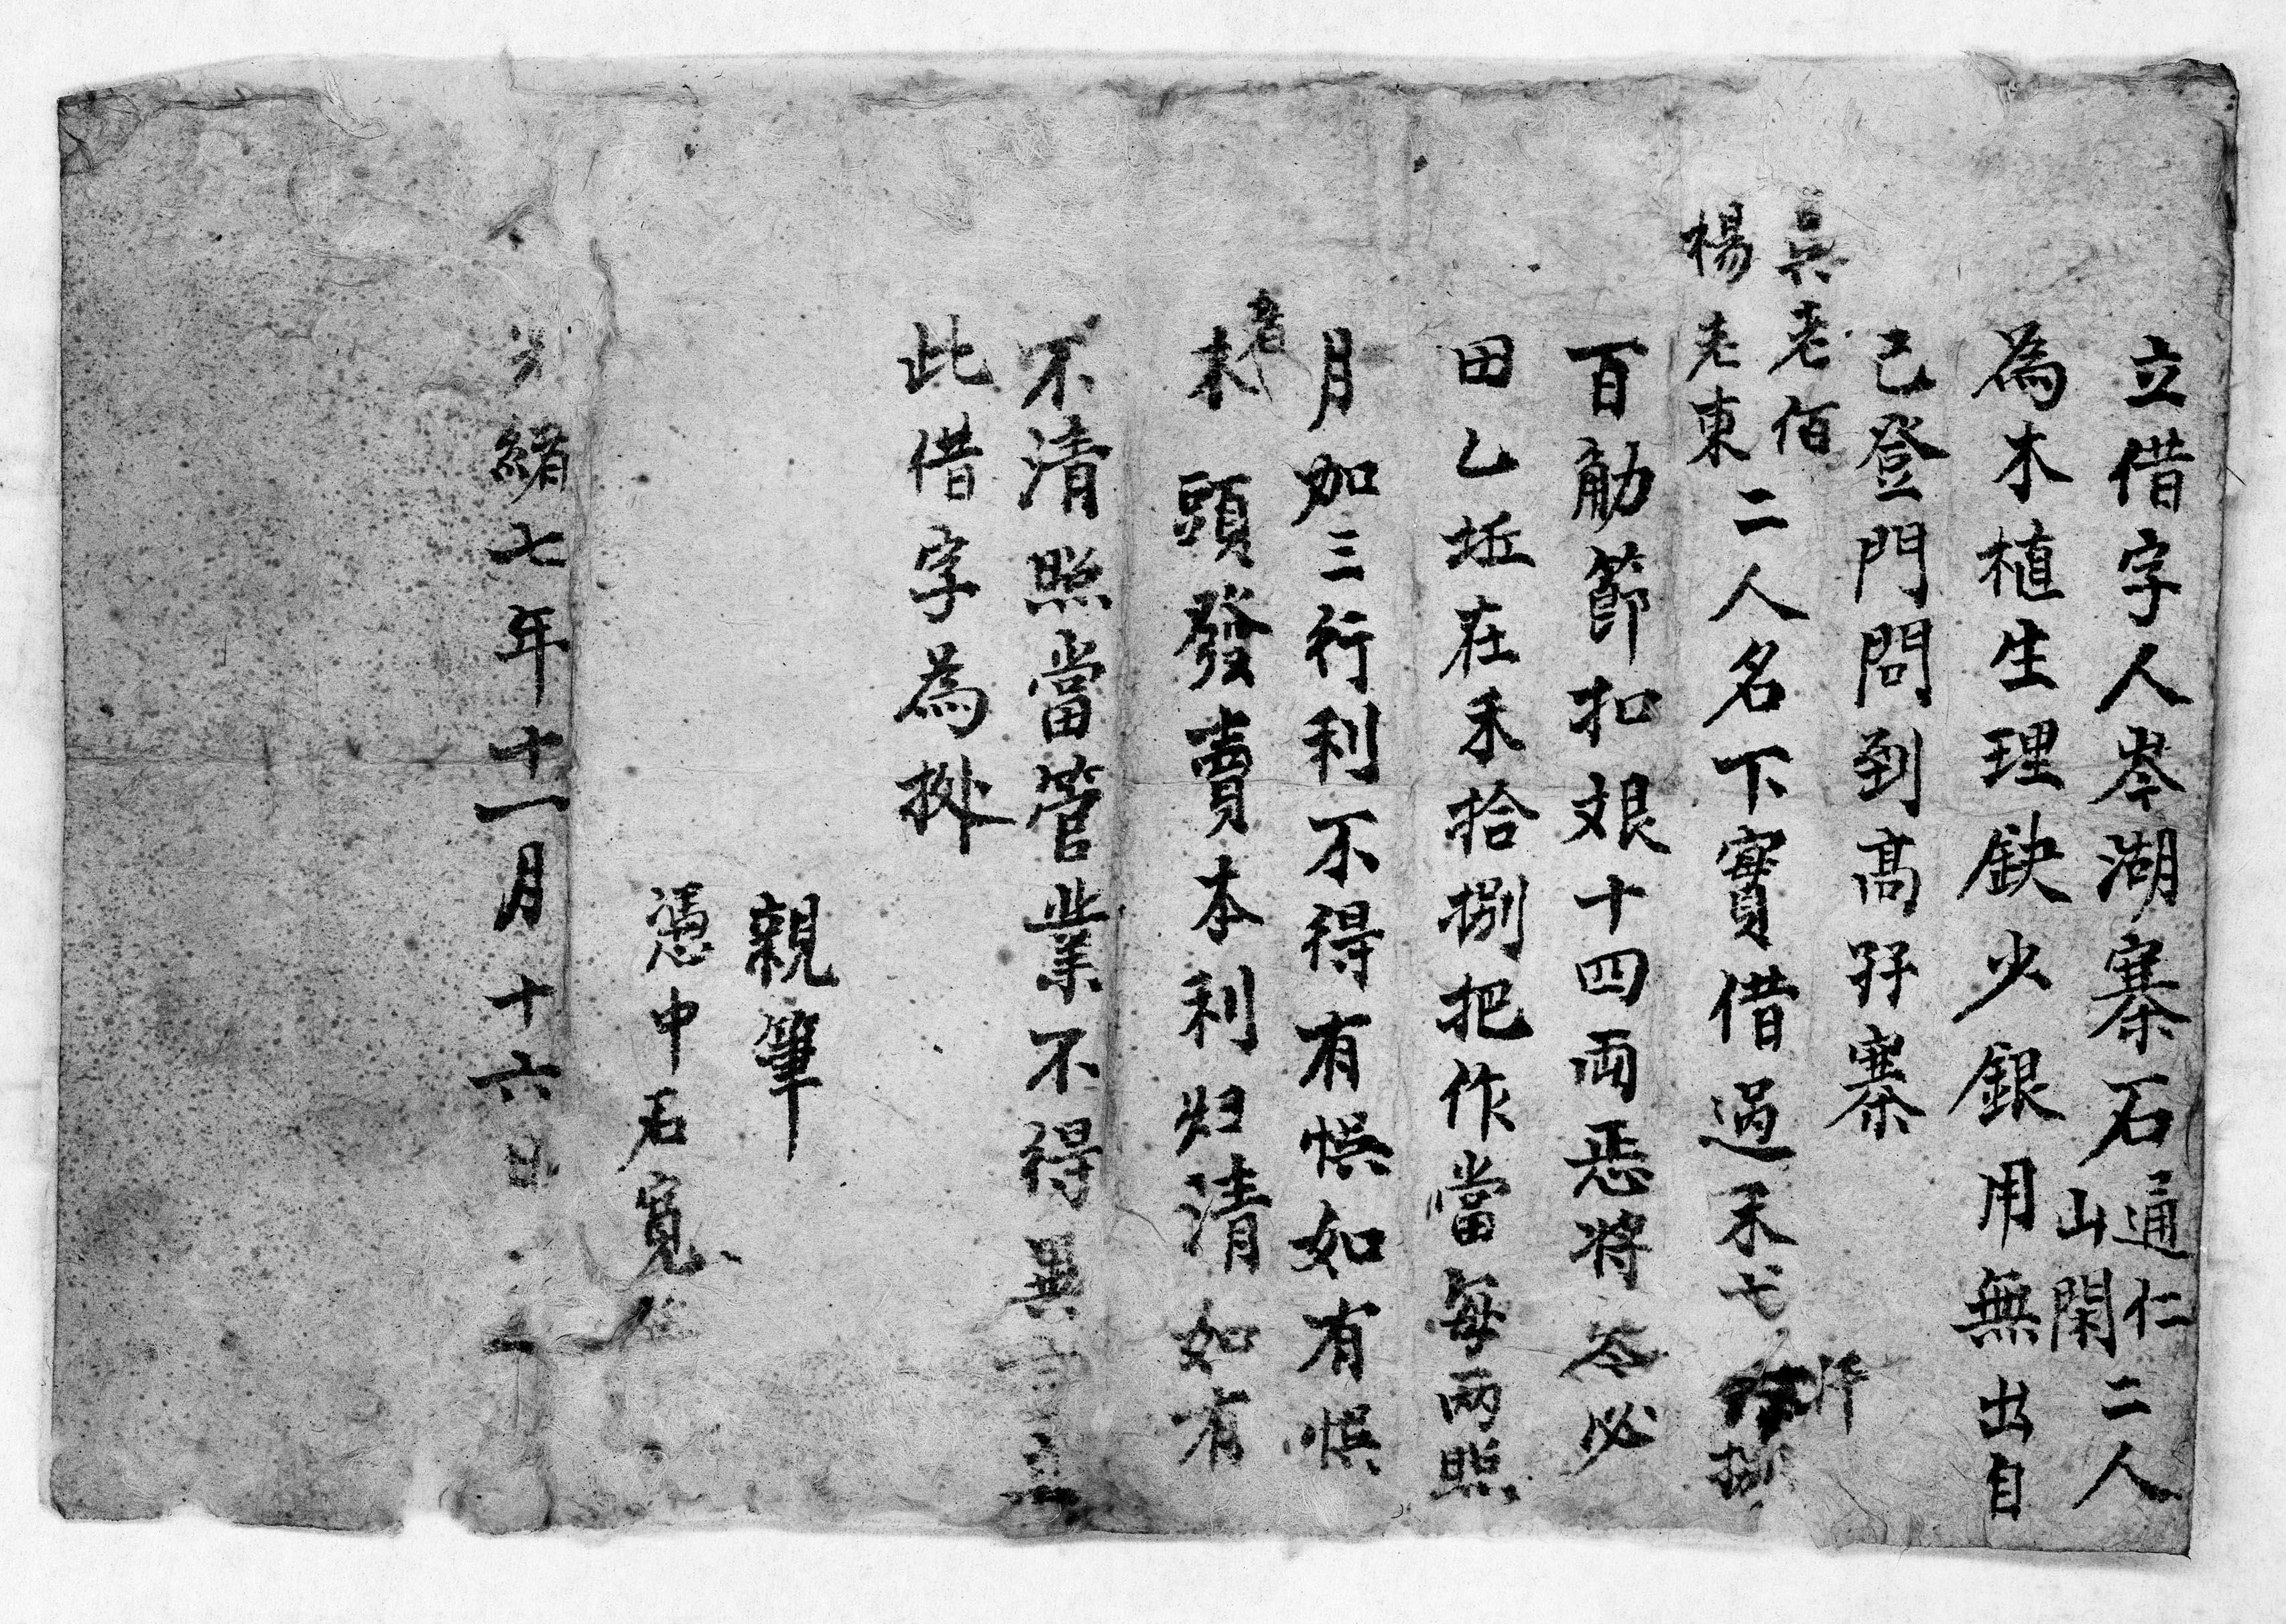 立借字人岑湖寨石通仁山閑二人
為木植生理缺少銀用無出自
己登門問到高孖寨
吳老佰
楊老東二人名下實借過禾七秤捌
百觔節扣艮十四両恁將岑必
田乙坵在禾拾捌把作當每两照
月加三行利不得有悞如有悞者
木頭發賣本利归清如有
不清照當管業不得異言立
此借字為㨿
親筆
憑中石寬
光緒七年十一月十六日立